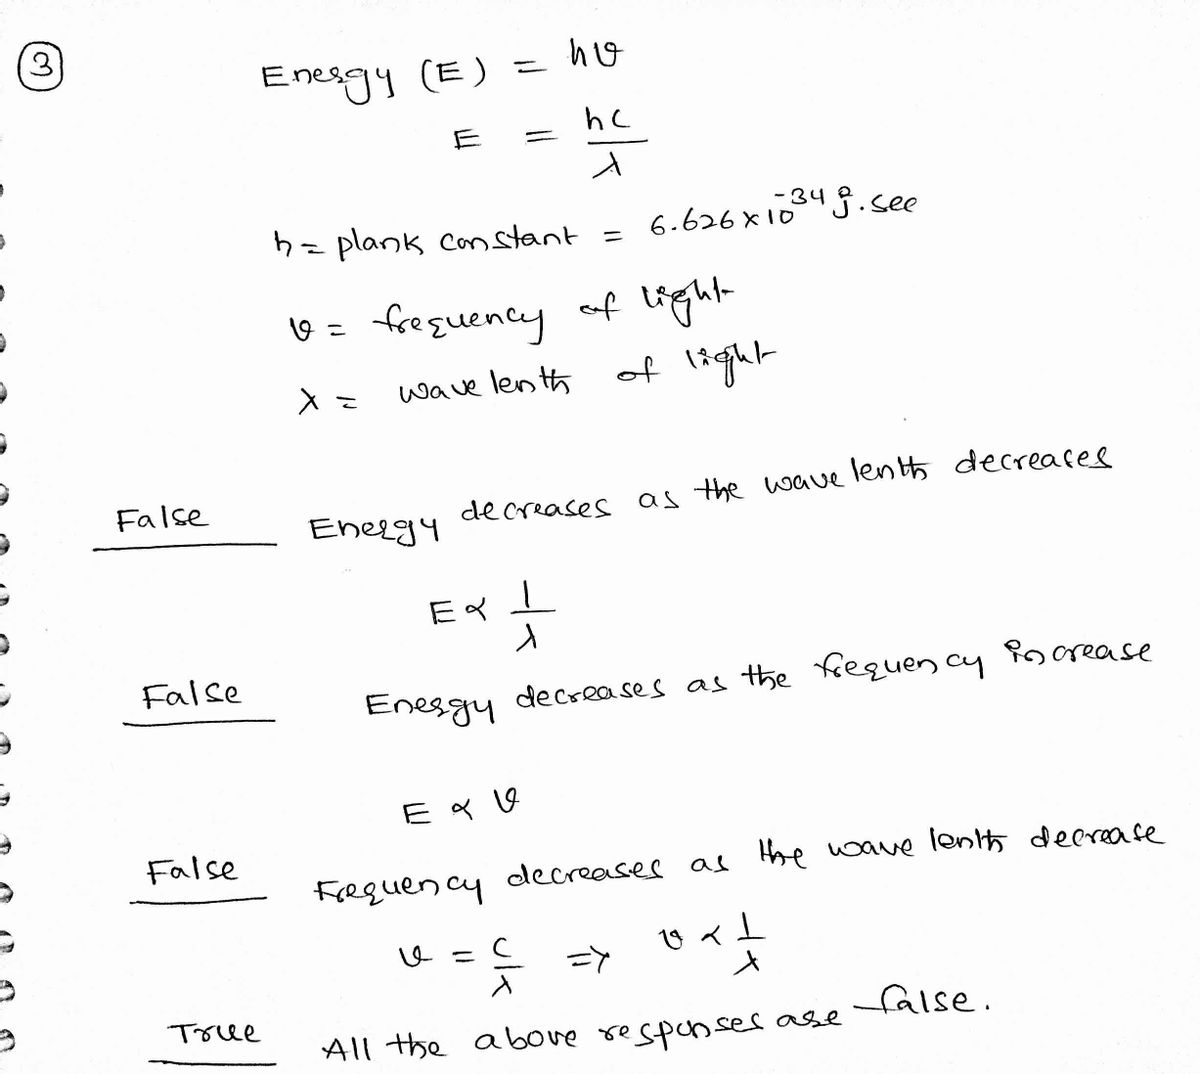 3
Energy (E) = hυ
E = hc/λ
h = plank constant = 6.626 x 10^-34 J.sec
υ = frequency of light
λ = wave lenth of light
False Energy decreases as the wave lenth decreaces
E ∝ 1/λ
False Energy decreases as the frequency increase
E ∝ υ
False Frequency decreases as the wave lenth decrease
υ = c/λ => υ ∝ 1/λ
True All the above responses are false.